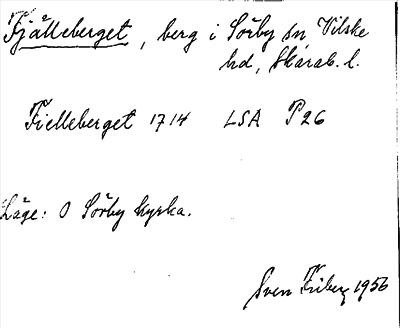 Fjälleberget, berg i Sörby sn Vilske
hd, Skarab. l.
Fielleberget 1714 LSA P26
Läge: O Sörby kyrka.
Sven Friberg 1956